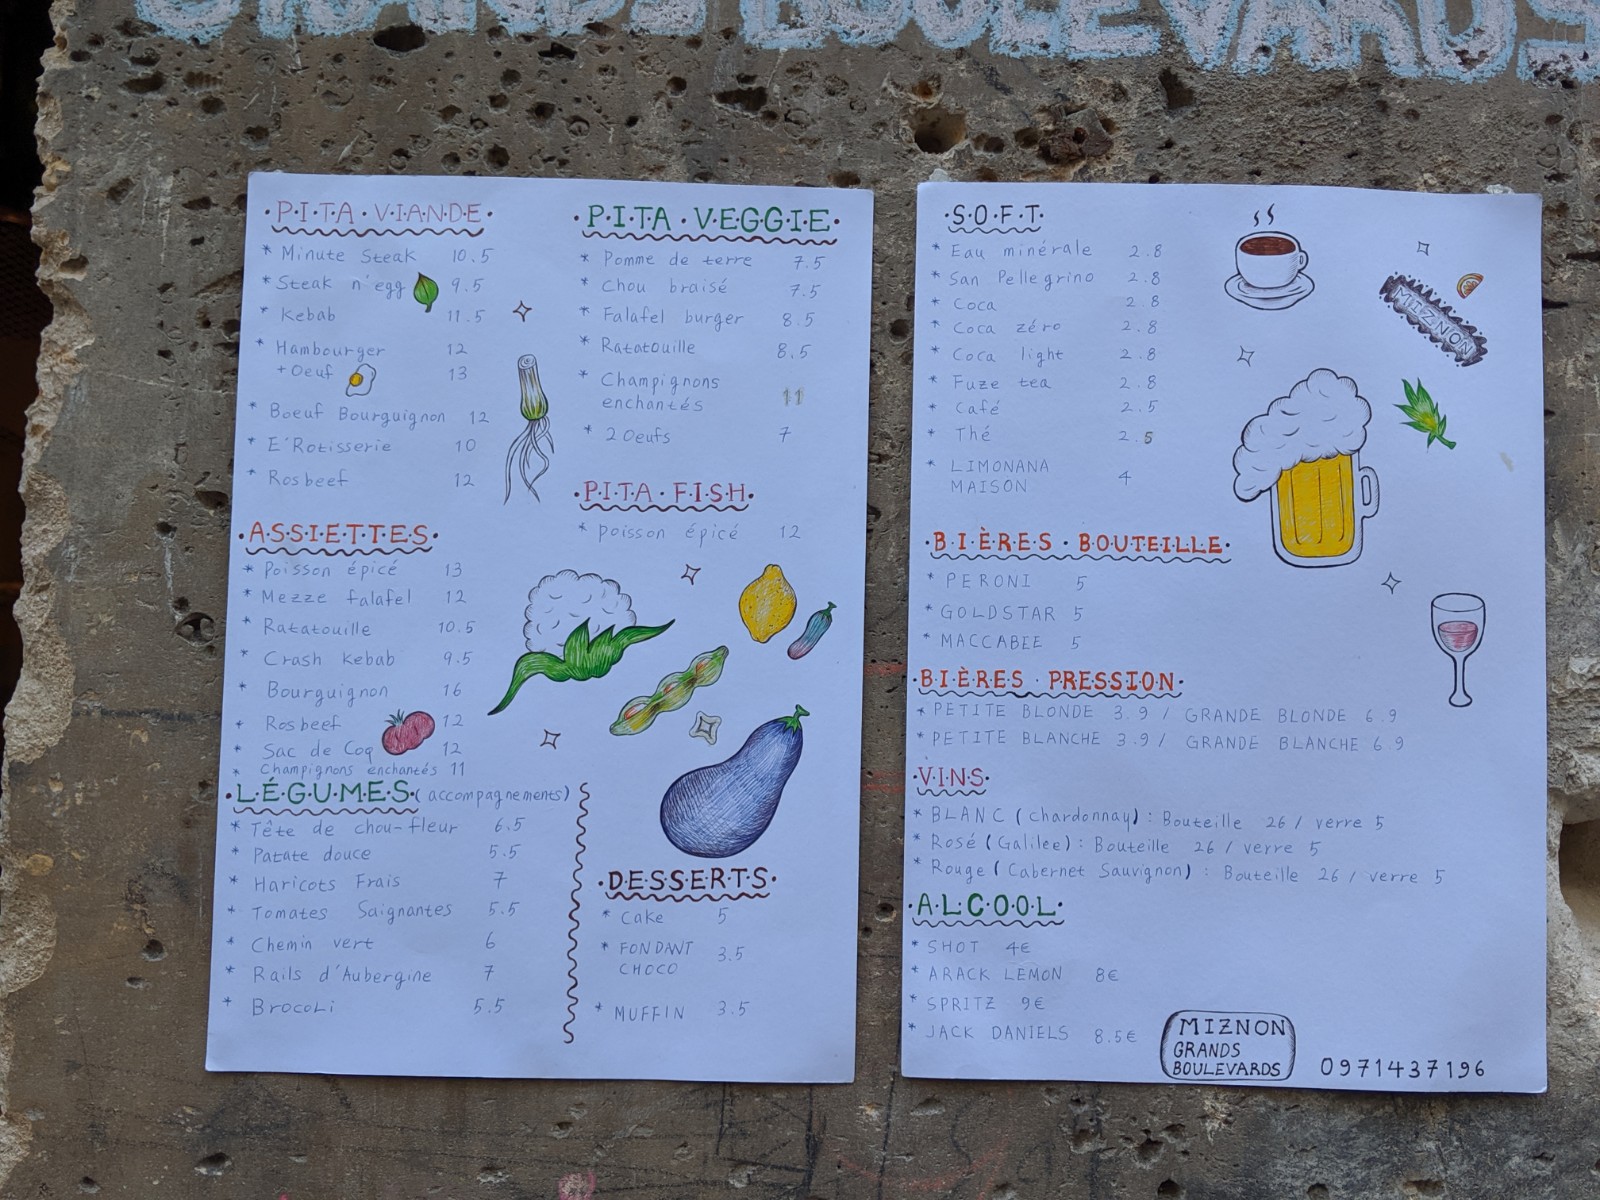 GRANDS BOULEVARDS
P.I.T.A. V.I.A.N.D.E
* Minute Steak 10.5
* Steak n'egg 9.5
* Kebab 11.5
* Hambourger 12
+ Oeuf 13
* Boeuf Bourguignon 12
* E'Rotisserie 10
* Rosbeef 12
A.S.S.I.E.T.T.E.S
* Poisson épicé 13
* Mezze falafel 12
* Ratatouille 10.5
* Crash Kebab 9.5
* Bourguignon 16
* Rosbeef 12
* Sac de Coq 12
* Champignons enchantés 11
L.É.G.U.M.E.S (accompagnements)
* Tête de chou-fleur 6.5
* Patate douce 5.5
* Haricots Frais 7
* Tomates Saignantes 5.5
* Chemin vert 6
* Rails d'Aubergine 7
* Brocoli 5.5
P.I.T.A. V.E.G.G.I.E
* Pomme de terre 7.5
* Chou braisé 7.5
* Falafel burger 8.5
* Ratatouille 8.5
* Champignons
enchantés 11
* 2 Oeufs 7
P.I.T.A. F.I.S.H
* Poisson épicé 12
D.E.S.S.E.R.T.S
* Cake 5
* FONDANT
CHOCO 3.5
* MUFFIN 3.5
S.O.F.T
* Eau minérale 2.8
* San Pellegrino 2.8
* Coca 2.8
* Coca zéro 2.8
* Coca light 2.8
* Fuze tea 2.8
* Café 2.5
* Thé 2.5
* LIMONANA
MAISON 4
MIZNON
B.I.È.R.E.S. BOUTEILLE
* PERONI 5
* GOLDSTAR 5
* MACCABEE 5
B.I.È.R.E.S. PRESSION
* PETITE BLONDE 3.9 / GRANDE BLONDE 6.9
* PETITE BLANCHE 3.9 / GRANDE BLANCHE 6.9
V.I.N.S
* BLANC (Chardonnay) : Bouteille 26 / verre 5
* Rosé (Galilee) : Bouteille 26 / verre 5
* Rouge (Cabernet Sauvignon) : Bouteille 26 / verre 5
A.L.C.O.O.L
* SHOT 4€
* ARACK LEMON 8€
* SPRITZ 9€
* JACK DANIELS 8.5€
MIZNON
GRANDS
BOULEVARDS
0971437196